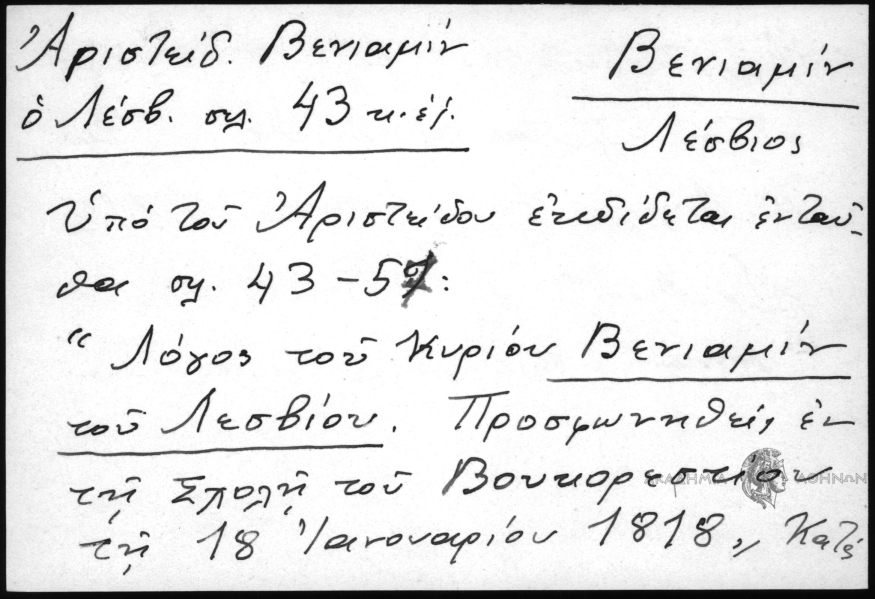 Ἀριστείδ. Βενιαμίν
ὁ Λέσβ. σελ. 43 κ.ἑξ.
Βενιαμίν
Λέσβιος
Ὑπό τοῦ Ἀριστείδου ἐκδίδεται ἐνταῦ-
θα σελ. 43-57:
"Λόγος τοῦ Κυρίου Βενιαμίν
τοῦ Λεσβίου. Προσφωνηθείς ἐν
τῇ Σχολῇ τοῦ Βουκορεστίου
τῇ 18 Ἰανουαρίου 1818" Κατά
ΑΚΑΔΗΜΙΑ ΑΘΗΝΩΝ